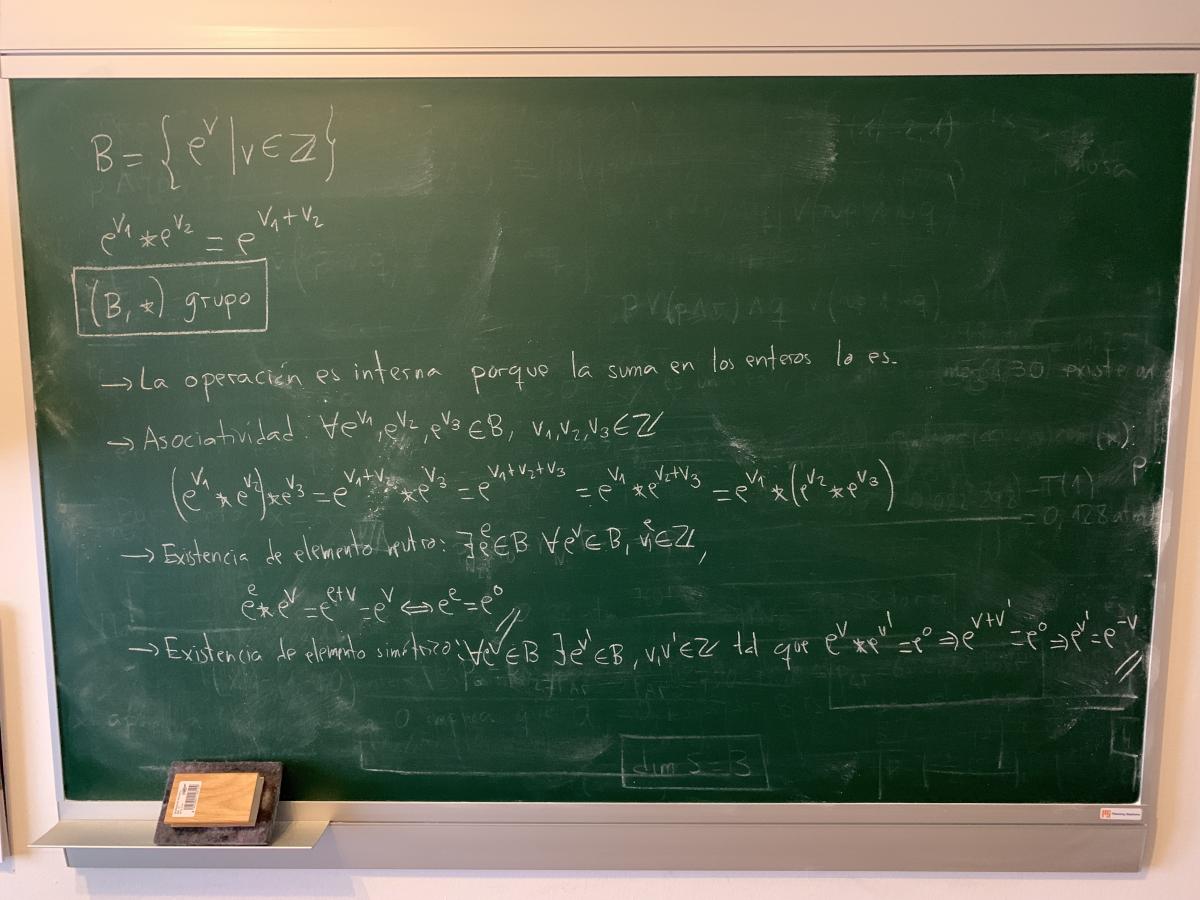 B = { e^v | v ∈ ℤ }
e^{v₁} * e^{v₂} = e^{v₁+v₂}
(B, *) grupo
→ La operación es interna porque la suma en los enteros lo es.
→ Asociatividad: ∀e^{v₁}, e^{v₂}, e^{v₃} ∈ B, v₁, v₂, v₃ ∈ ℤ
(e^{v₁} * e^{v₂}) * e^{v₃} = e^{v₁+v₂} * e^{v₃} = e^{v₁+v₂+v₃} = e^{v₁} * e^{v₂+v₃} = e^{v₁} * (e^{v₂} * e^{v₃})
→ Existencia de elemento neutro: ∃e^e ∈ B ∀e^v ∈ B, v, e ∈ ℤ,
e^e * e^v = e^{e+v} = e^v ⟺ e^e = e^0
→ Existencia de elemento simétrico: ∀e^v ∈ B ∃e^{v'} ∈ B, v, v' ∈ ℤ tal que e^v * e^{v'} = e^0 ⇒ e^{v+v'} = e^0 ⇒ e^{v'} = e^{-v}
dim S = 3